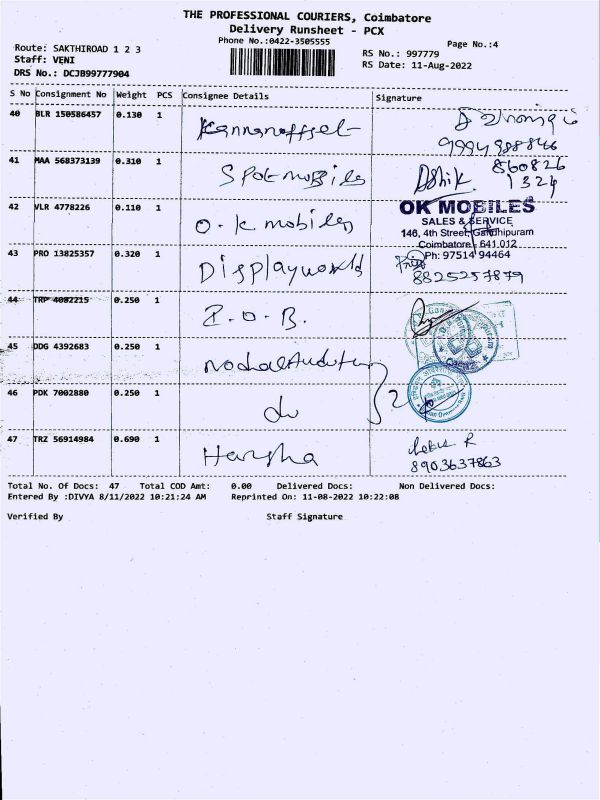 THE PROFESSIONAL COURIERS, Coimbatore
Delivery Runsheet - PCX
Phone No.:0422-3505555
Page No.:4
Route: SAKTHIROAD 1 2 3
RS No.: 997779
Staff: VENI
RS Date: 11-Aug-2022
DRS No.: DCJB99777904
S No Consignment No Weight PCS Consignee Details Signature
40 BLR 150586457 0.130 1 Kannanoffset
9994988846
41 MAA 568373139 0.310 1 Spot mobiles
860826
1324
42 VLR 4778226 0.110 1 O.K mobiles
OK MOBILES
SALES & SERVICE
146, 4th Street, Gandhipuram
Coimbatore - 641 012
Ph: 97514 94464
43 PRO 13825357 0.320 1 Displayworld
8825257879
44 TRP 4082215 0.250 1 I.O.B.
45 DDG 4392683 0.250 1
46 PDK 7002880 0.250 1 do 2
47 TRZ 56914984 0.690 1 Harsha
8903637863
Total No. Of Docs: 47 Total COD Amt: 0.00 Delivered Docs: Non Delivered Docs:
Entered By :DIVYA 8/11/2022 10:21:24 AM Reprinted On: 11-08-2022 10:22:08
Verified By Staff Signature